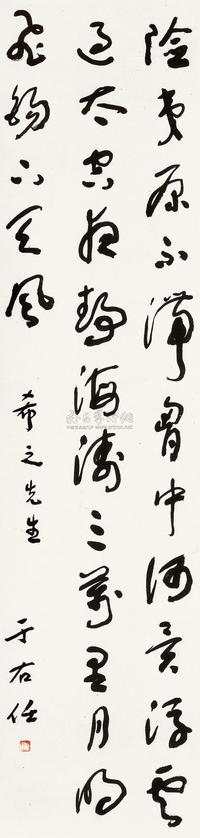 險夷原不滯胷中何異浮雲
過太空夜靜海濤三萬里月明
飛錫下天風
希之先生
于右任